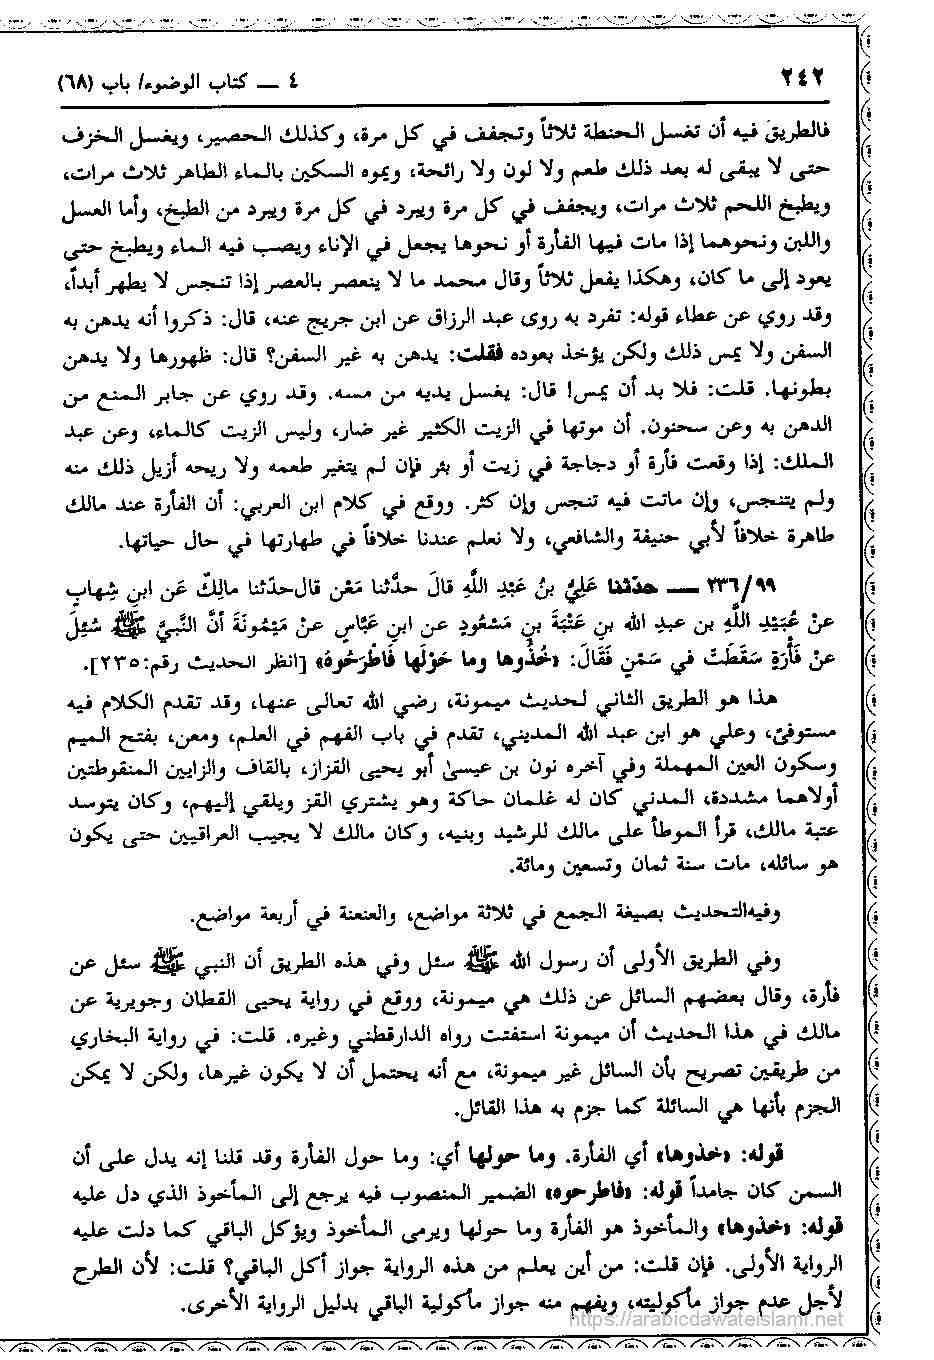 ٢٤٢
٤ ـــ كتاب الوضوء/ باب (٦٨)
فالطريقَ فيه أن تغسل الحنطة ثلاثاً وتجفف في كل مرة، وكذلك الحصير، ويغسل الخزف
حتى لا يبقى له بعد ذلك طعم ولا لون ولا رائحة، ويموه السكين بالماء الطاهر ثلاث مرات،
ويطبخ اللحم ثلاث مرات، ويجفف في كل مرة ويبرد في كل مرة ويبرد من الطبخ، وأما العسل
واللبن ونحوهما إذا مات فيها الفأرة أو نحوها يجعل في الإناء ويصب فيه الماء ويطبخ حتى
يعود إلى ما كان، وهكذا يفعل ثلاثاً وقال محمد ما لا ينعصر بالعصر إذا تنجس لا يطهر أبداً،
وقد روي عن عطاء قوله: تفرد به روى عبد الرزاق عن ابن جريج عنه، قال: ذكروا أنه يدهن به
السفن ولا يمس ذلك ولكن يؤخذ بعوده فقلت: يدهن به غير السفن؟ قال: ظهورها ولا يدهن
بطونها. قلت: فلا بد أن يمس! قال: يغسل يديه من مسه. وقد روي عن جابر المنع من
الدهن به وعن سحنون. أن موتها في الزيت الكثير غير ضار، وليس الزيت كالماء، وعن عبد
الملك: إذا وقعت فأرة أو دجاجة في زيت أو بئر فإن لم يتغير طعمه ولا ريحه أزيل ذلك منه
ولم يتنجس، وإن ماتت فيه تنجس وإن كثر. ووقع في كلام ابن العربي: أن الفأرة عند مالك
طاهرة خلافاً لأبي حنيفة والشافعي، ولا نعلم عندنا خلافاً في طهارتها في حال حياتها.
٢٣٦/٩٩ ـــ حدّثنا عَلِيُّ بنُ عَبْدِ اللَّهِ قالَ حدَّثنا مَعْن قال حدّثنا مالِكٌ عَن ابنِ شِهابٍ
عنْ عُبَيْدِ اللَّهِ بن عبدِ الله بنِ عَتْبَةَ بنِ مَسْعُودٍ عن ابنِ عَبَّاسٍ عنْ مَيْمُونَةَ أنَّ النَّبيَّ ﷺ سُئِلَ
عنْ فَأْرَةٍ سَقَطَتْ في سَمْنٍ فَقَالَ: «خُذُوها وما حَوْلَها فَاطْرَحُوهُ» [انظر الحديث رقم: ٢٣٥].
هذا هو الطريق الثاني لحديث ميمونة، رضي الله تعالى عنها، وقد تقدم الكلام فيه
مستوفىً، وعلي هو ابن عبد الله المديني، تقدم في باب الفهم في العلم، ومعن، بفتح الميم
وسكون العين المهملة وفي آخره نون بن عيسىٰ أبو يحيى القزاز، بالقاف والزايين المنقوطتين
أولاهما مشددة، المدني كان له غلمان حاكة وهو يشتري القز ويلقي إليهم، وكان يتوسد
عتبة مالك، قرأ الموطأ على مالك للرشيد وبنيه، وكان مالك لا يجيب العراقيين حتى يكون
هو سائله، مات سنة ثمان وتسعين ومائة.
وفيه التحديث بصيغة الجمع في ثلاثة مواضع، والعنعنة في أربعة مواضع.
وفي الطريق الأولى أن رسول الله ﷺ سئل وفي هذه الطريق أن النبي ﷺ سئل عن
فأرة، وقال بعضهم السائل عن ذلك هي ميمونة، ووقع في رواية يحيى القطان وجويرية عن
مالك في هذا الحديث أن ميمونة استفتت رواه الدارقطني وغيره. قلت: في رواية البخاري
من طريقين تصريح بأن السائل غير ميمونة، مع أنه يحتمل أن لا يكون غيرها، ولكن لا يمكن
الجزم بأنها هي السائلة كما جزم به هذا القائل.
قوله: «خذوها» أي الفأرة. وما حولها أي: وما حول الفأرة وقد قلنا إنه يدل على أن
السمن كان جامداً قوله: «فاطرحوه» الضمير المنصوب فيه يرجع إلى المأخوذ الذي دل عليه
قوله: «خذوها» والمأخوذ هو الفأرة وما حولها ويرمى المأخوذ ويؤكل الباقي كما دلت عليه
الرواية الأولى. فإن قلت: من أين يعلم من هذه الرواية جواز أكل الباقي؟ قلت: لأن الطرح
لأجل عدم جواز مأكوليته، ويفهم منه جواز مأكولية الباقي بدليل الرواية الأخرى.
https://arabicdawateislami.net